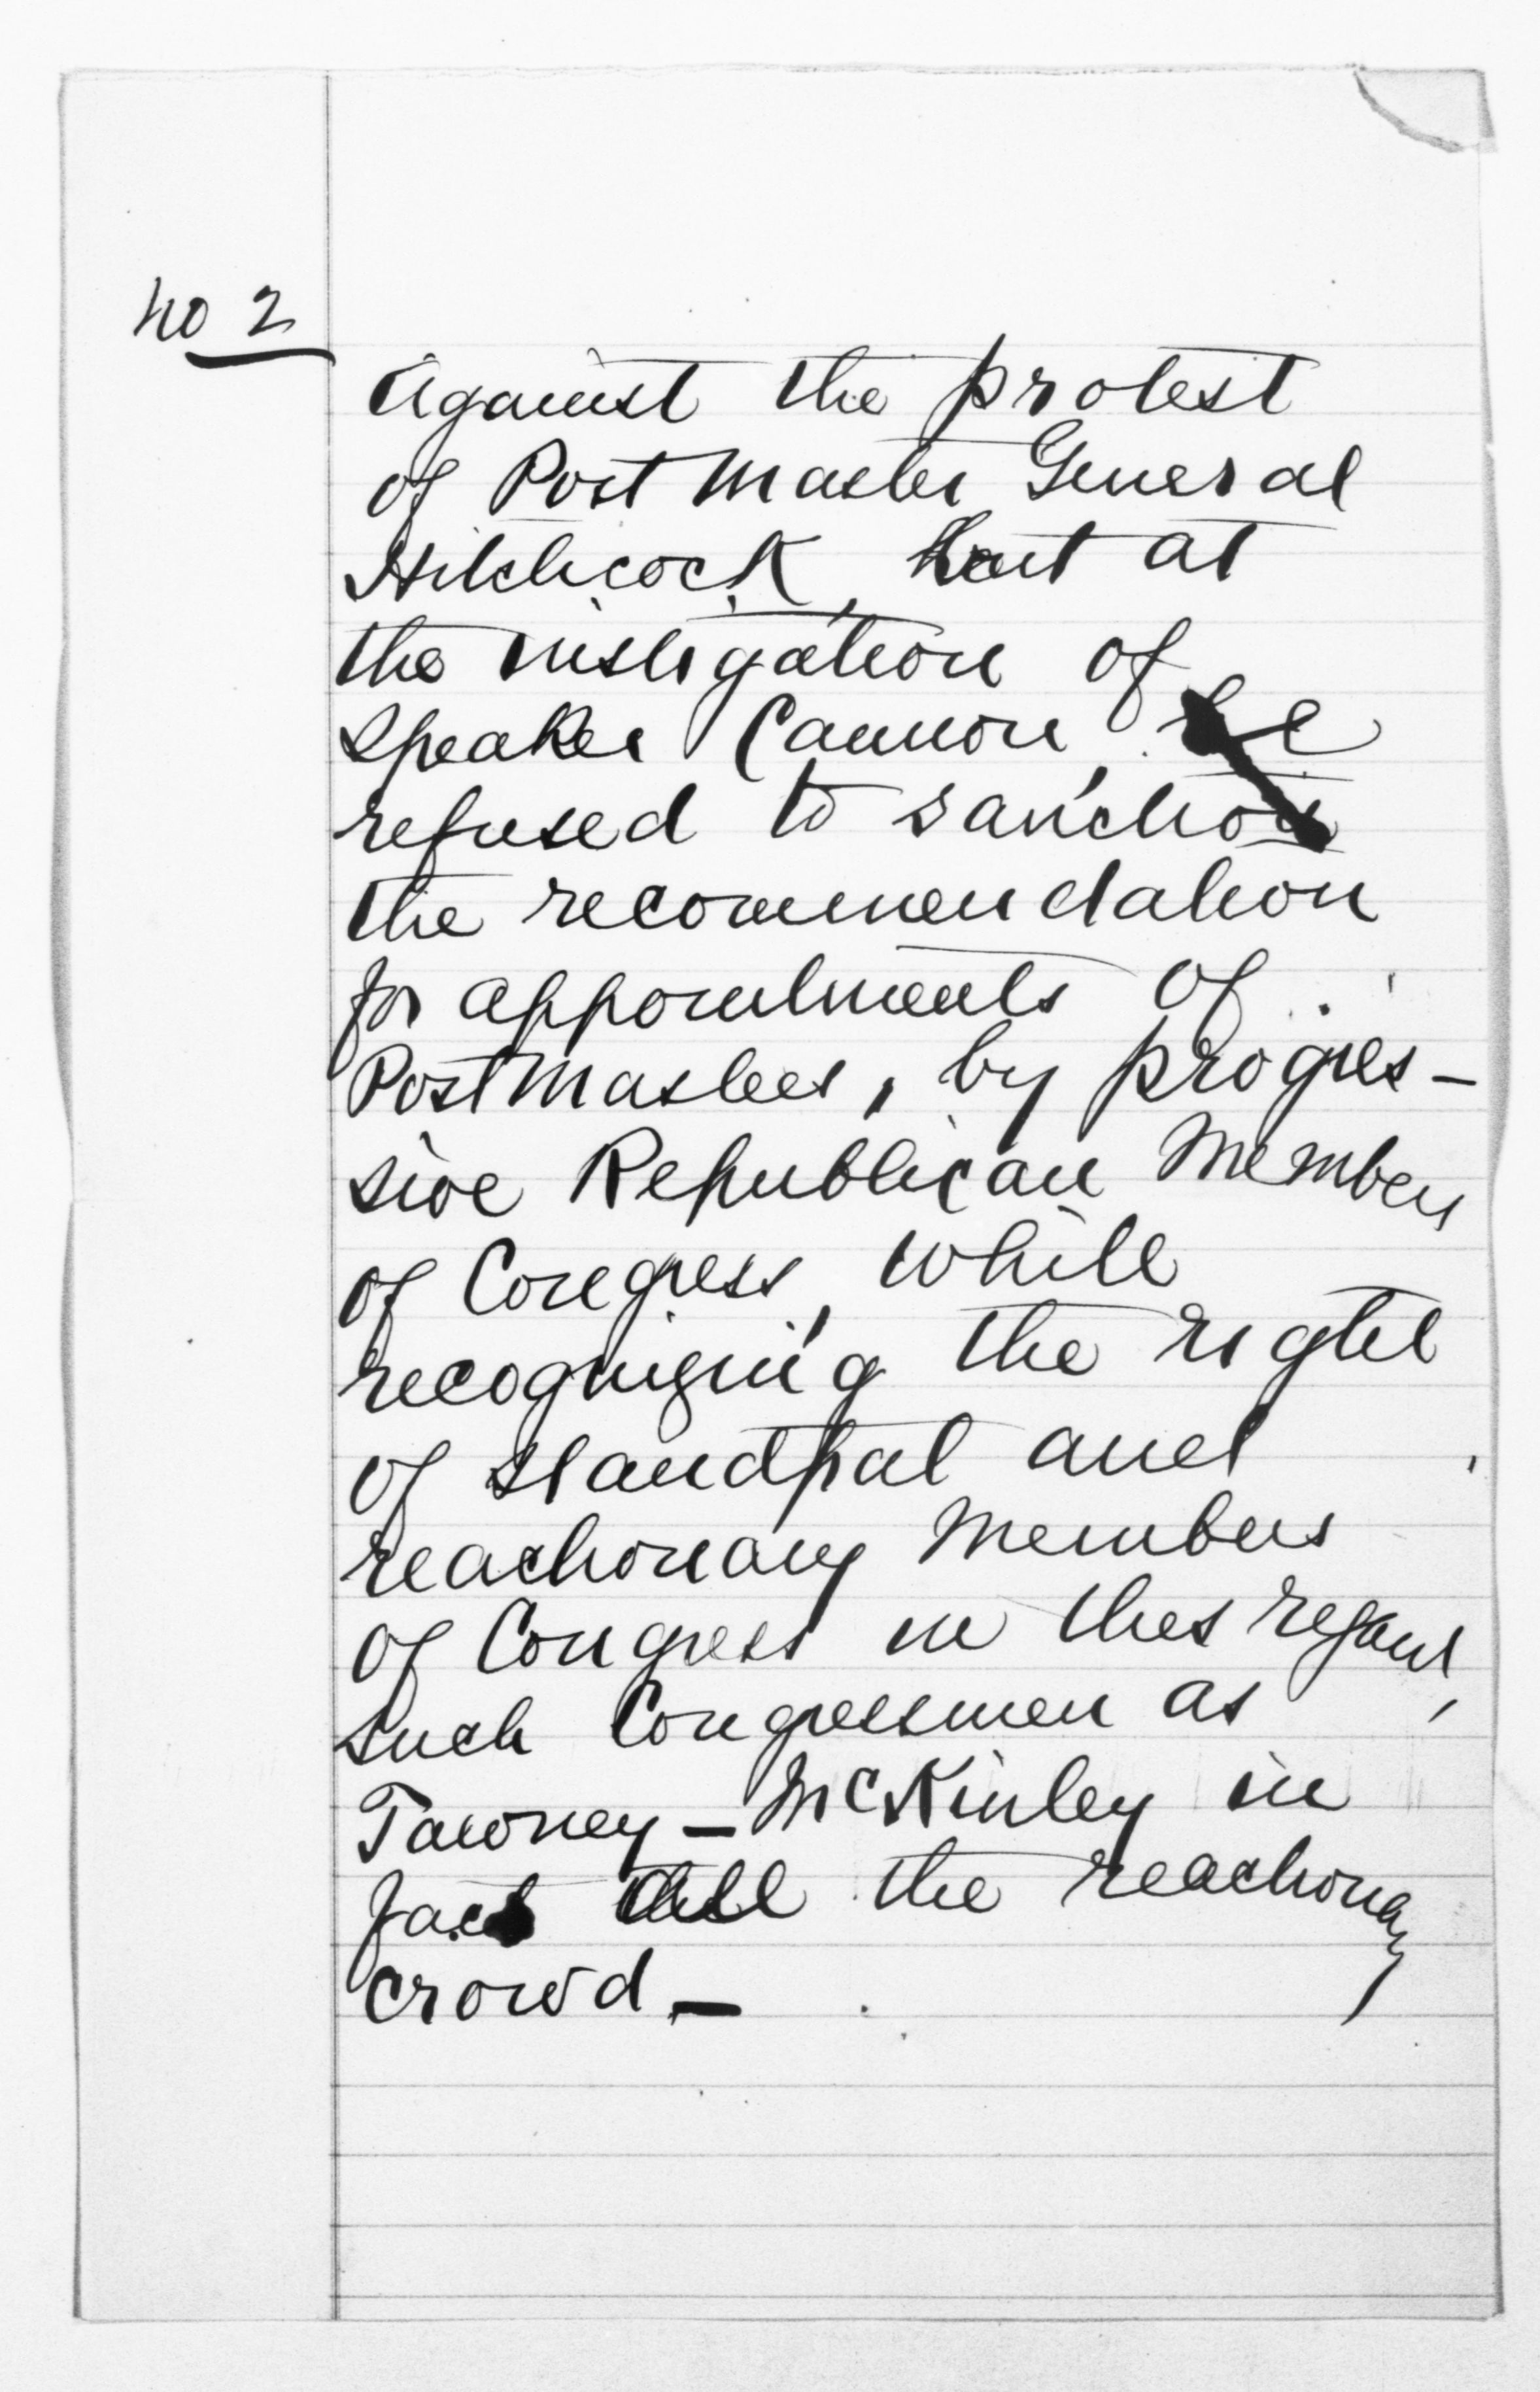 No 2
Against the protest
of Post Master General
Hitchcock, but at
the instigation of
Speaker Cannon, he
refused to sanction
the recommendation
for appointments of
Postmasters, by progres-
sive Republican Members
of Congress, while
recognizing the right
of standpat and
reactionary Members
of Congress in this regard,
such Congressmen as
Tawney - McKinley in
fact all the reactionary
crowd -